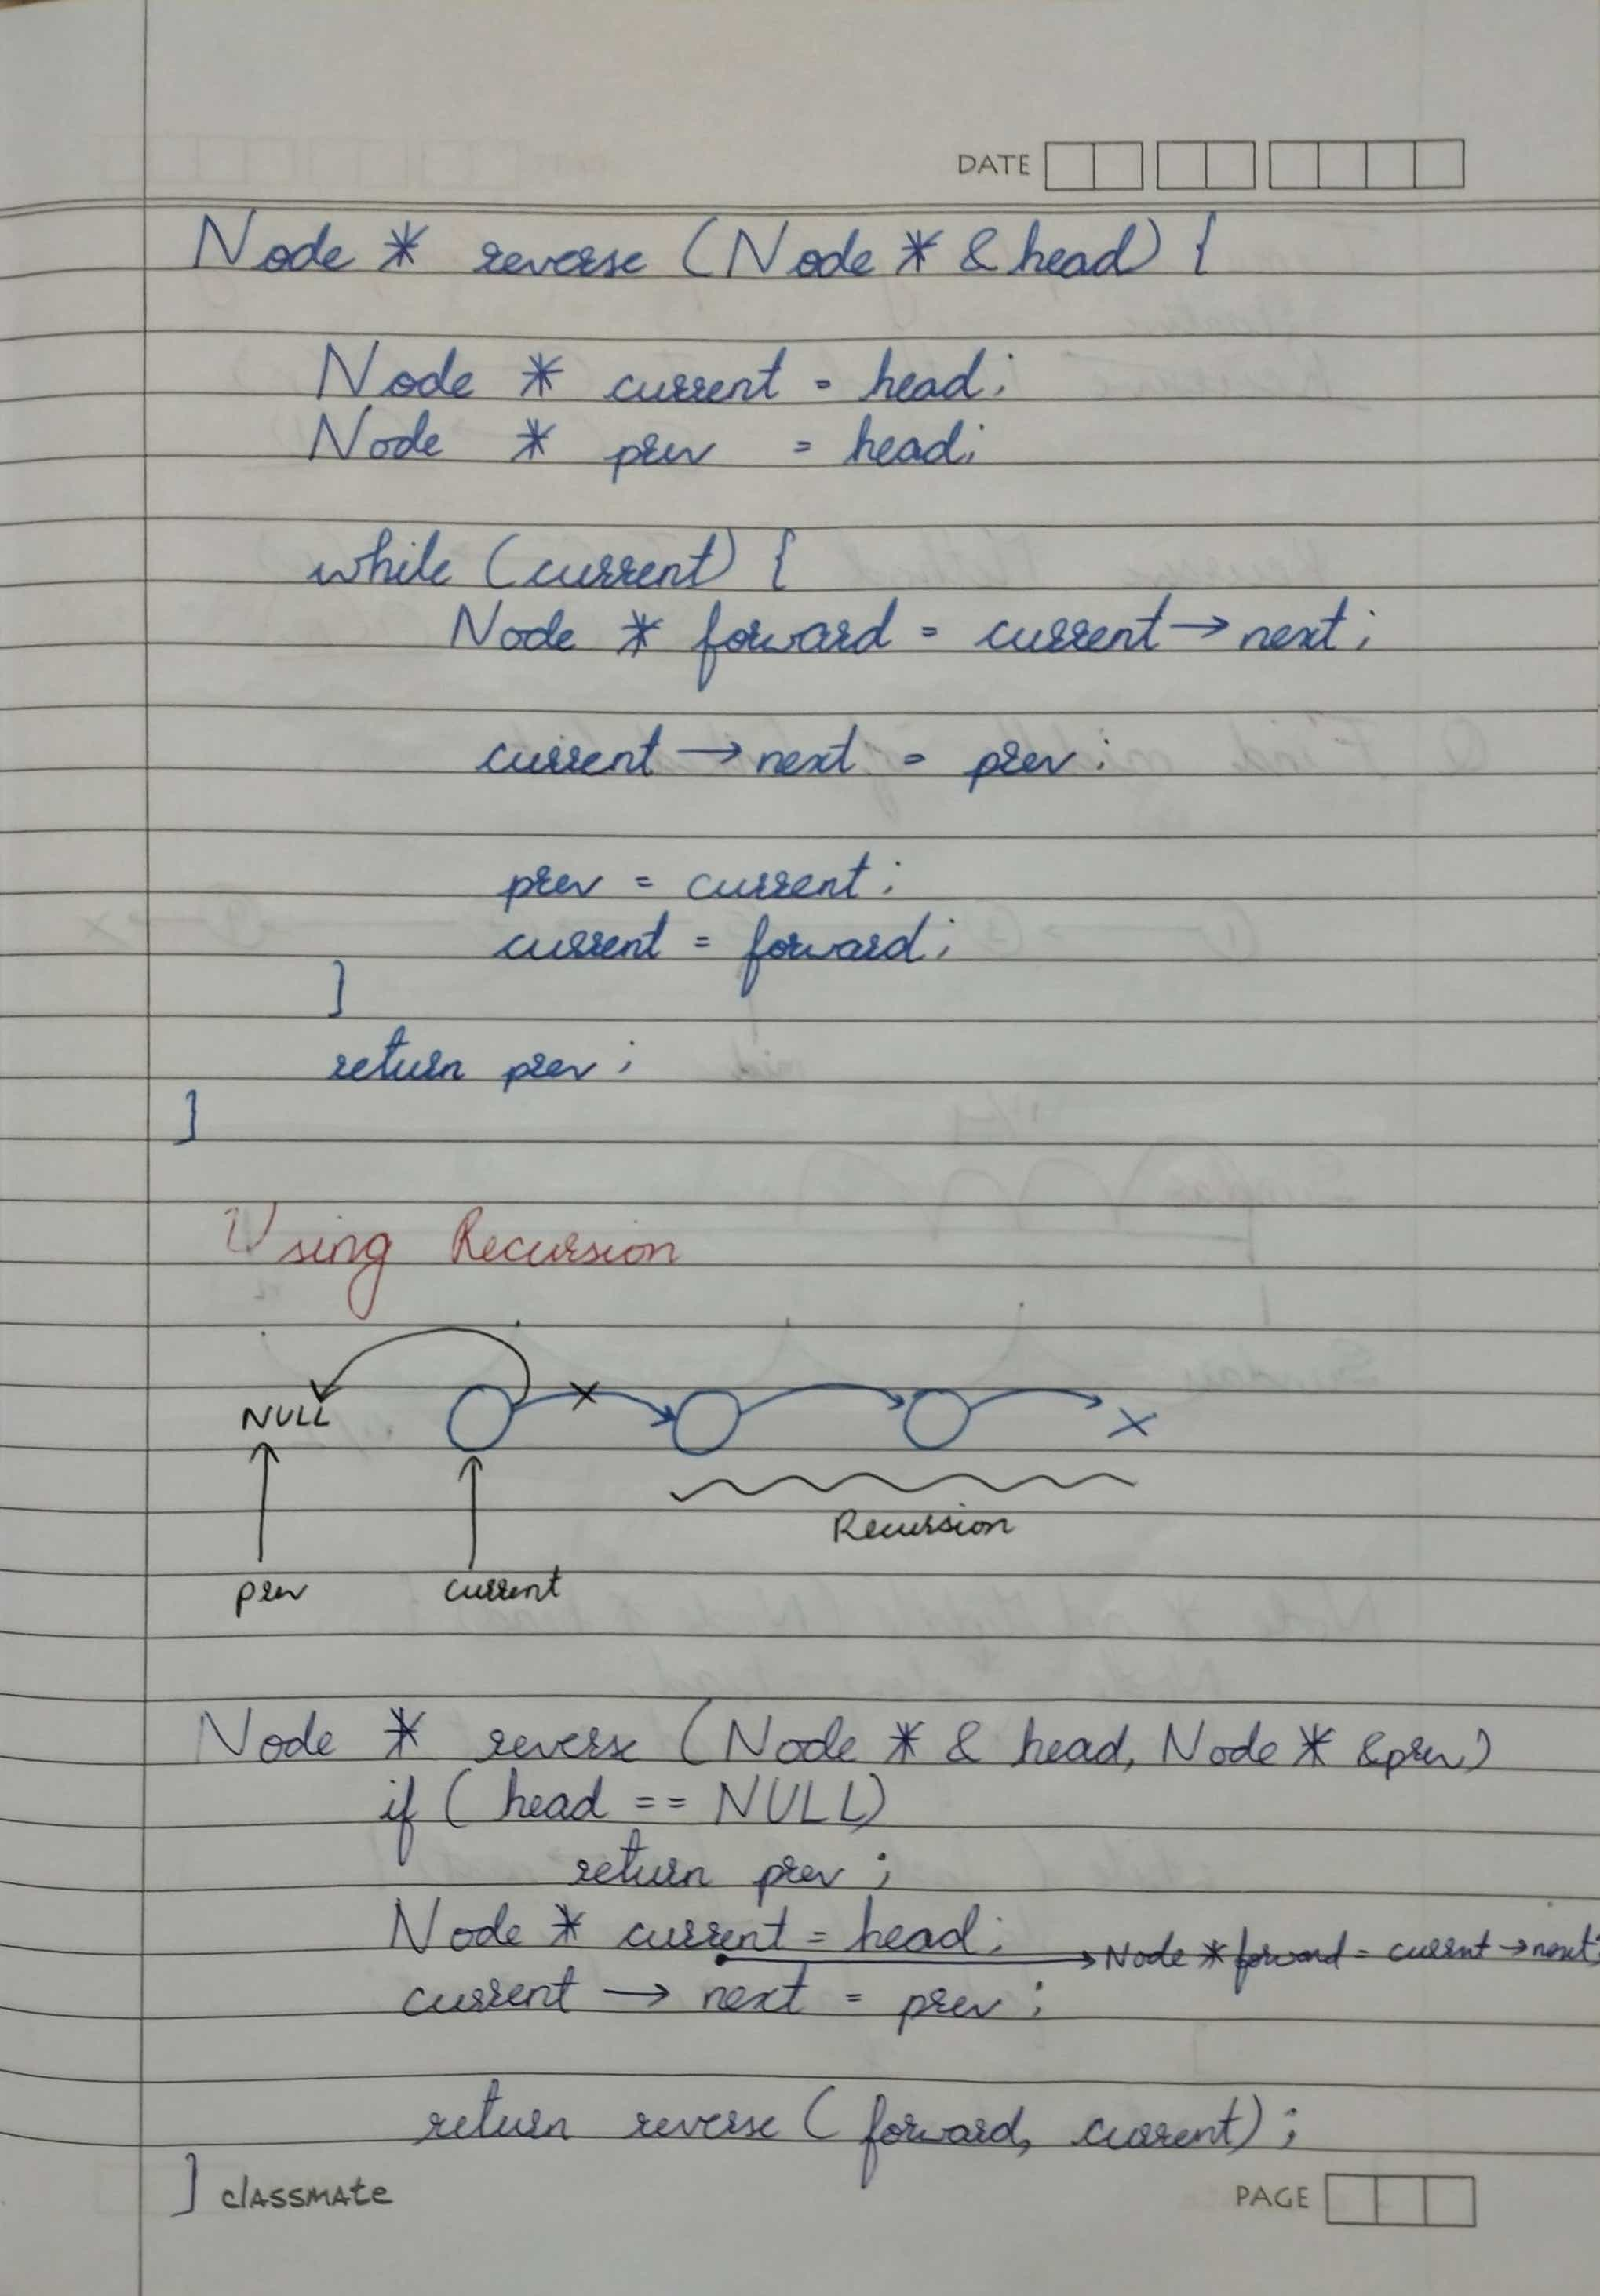 DATE
Node * reverse (Node * & head) {
Node * current = head;
Node * prev = head;
while (current) {
Node * forward = current → next;
current → next = prev;
prev = current;
current = forward;
}
return prev;
}
Using Recursion
NULL
Recursion
prev current
Node * reverse (Node * & head, Node * &prev)
if (head == NULL)
return prev;
Node * current = head;
→ Node * forward = current → next;
current → next = prev;
return reverse (forward, current);
}
classmate PAGE